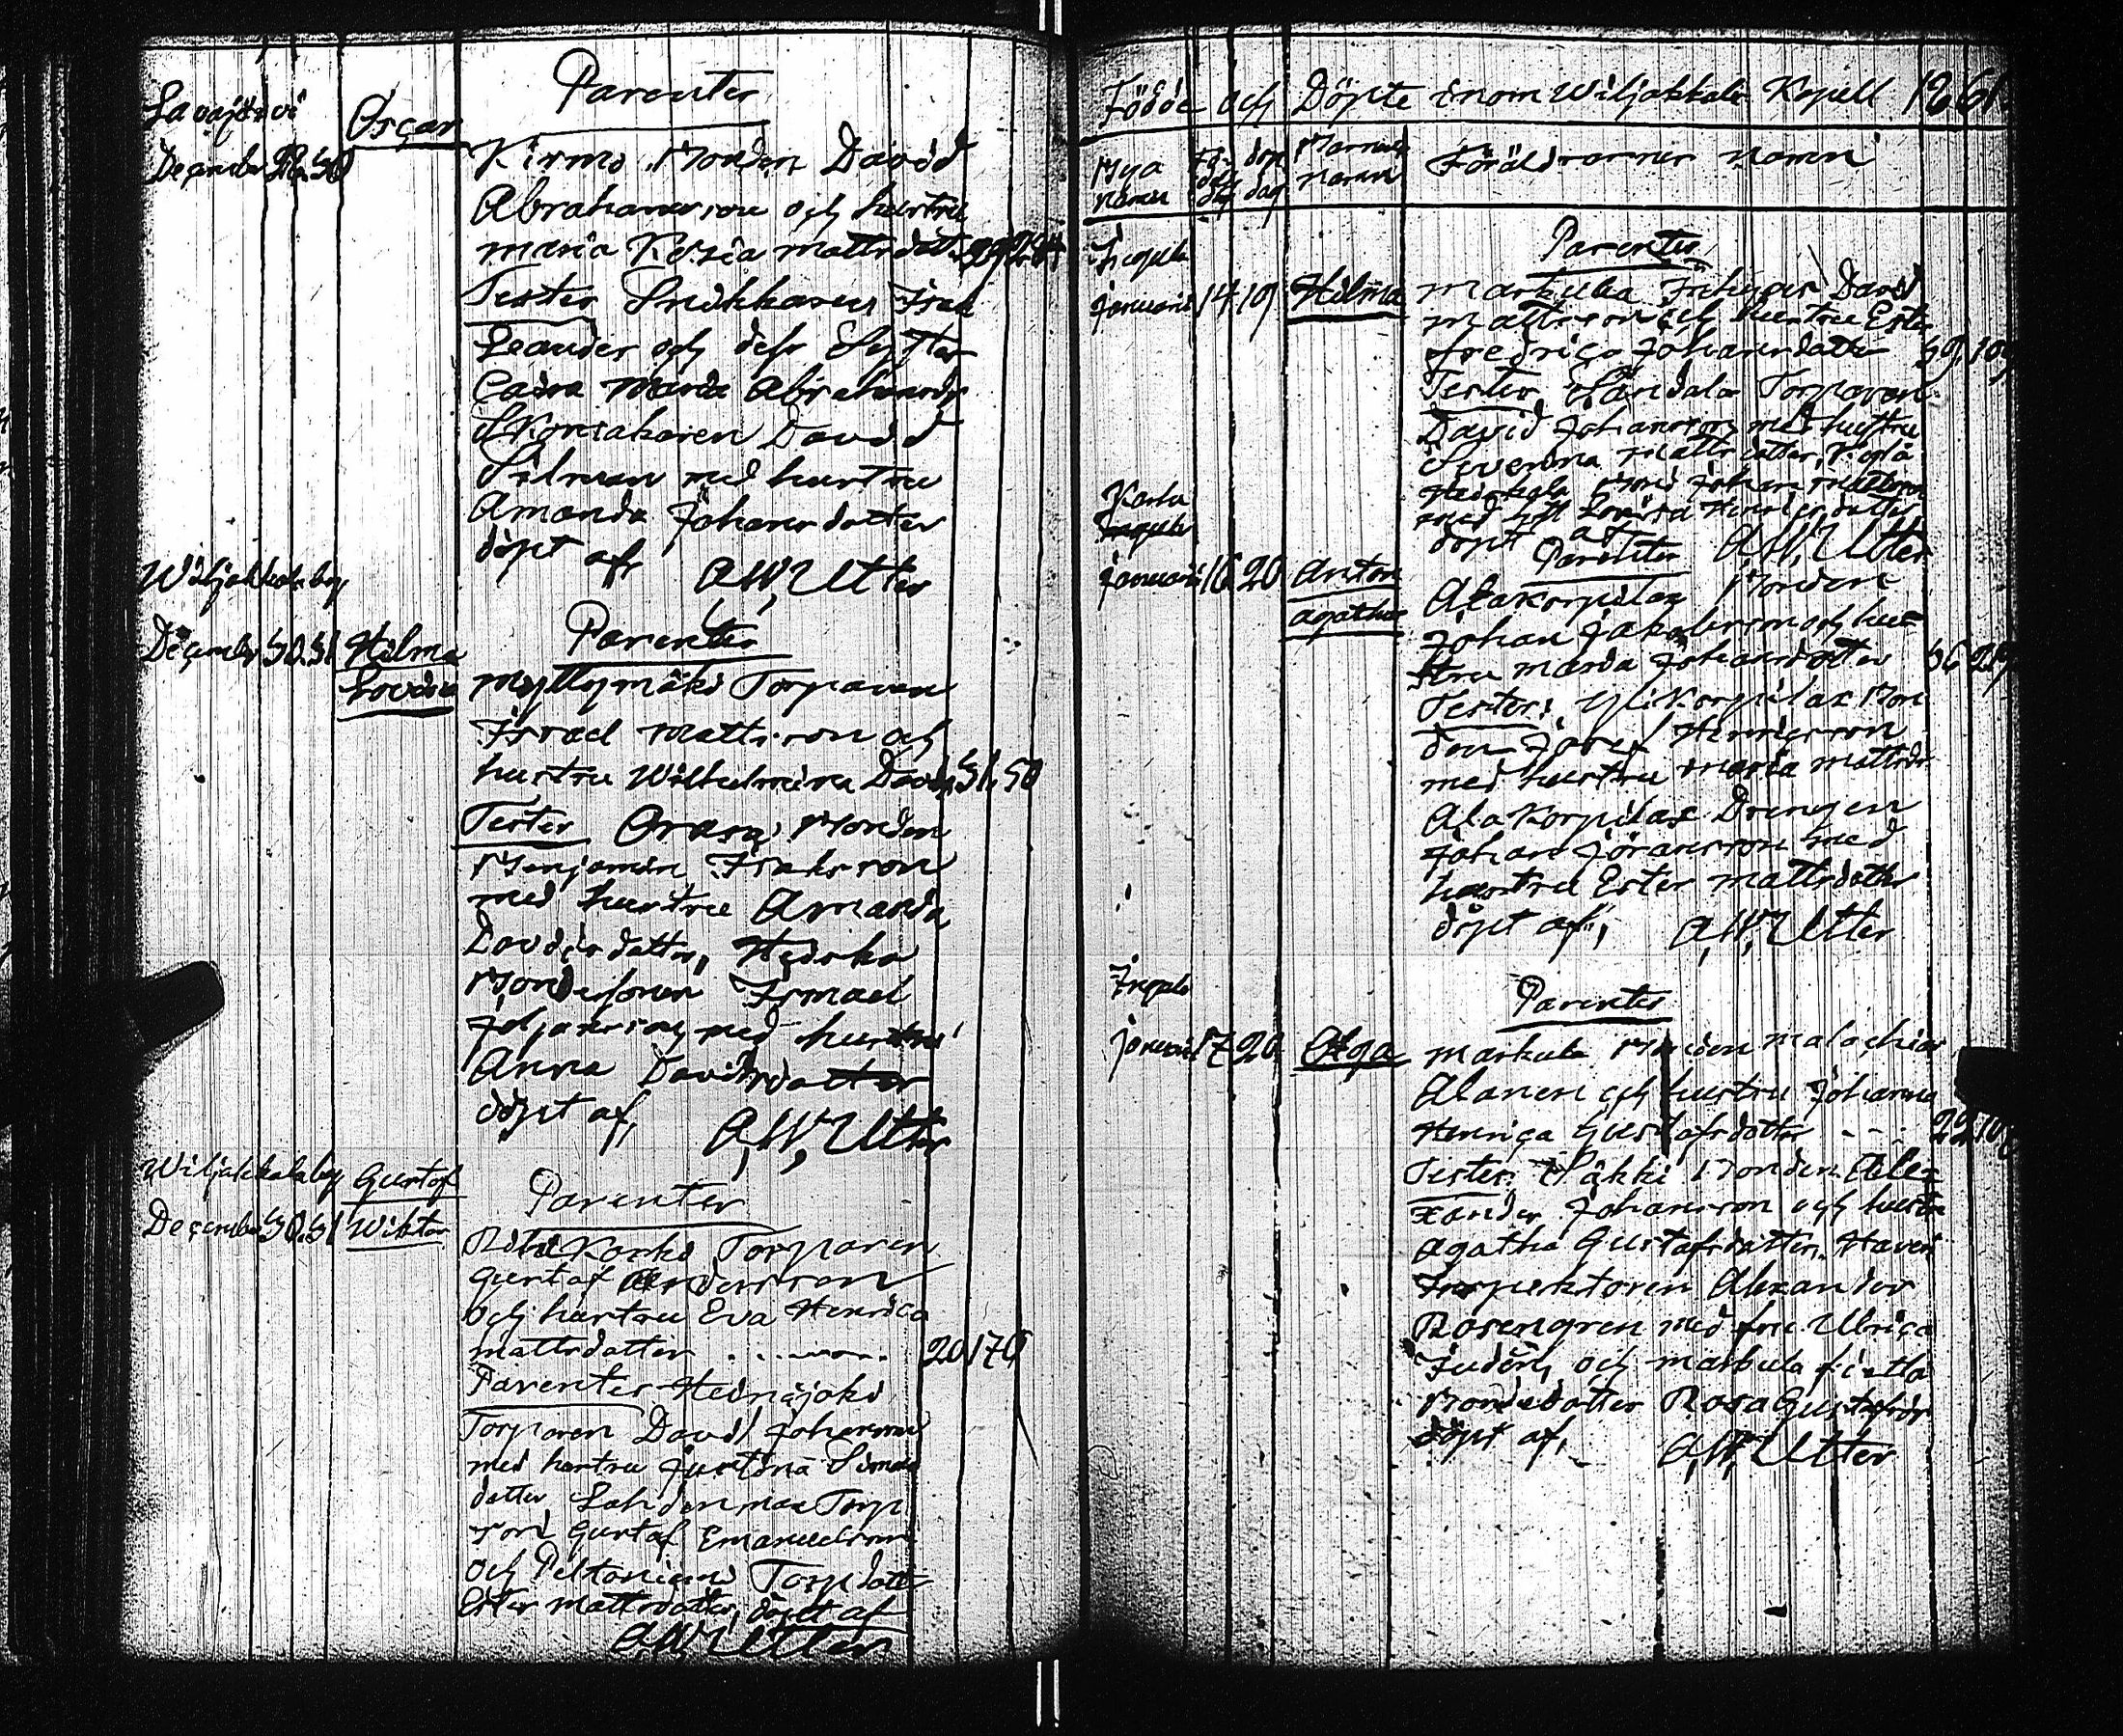 Lavajärvi
December 26. 30
Oscar
Parenter
Kirmo Bonden David
Abrahamsson och hustru
Maria Kesia Mattsdott.
Tester Snikkarns Isak
Leander och dess Syster
Caisa Maria Abrahamsdr
Skomakaren David
Silman med hustru
Amanda Johansdotter
döpt af, A,W, Utter
Wiljakkala by
December 30. 31 Hilma
Lovisa
Parenter
Myllymäki Torparen
Israel Mattsson och
hustru Wilhelmina Davids. 31. 50
Tester Bonden
Benjamin Isaksson
med hustru Amanda
Davidsdotter, Heiska
Bondesonen Ismael
Johansson med hustru
Anna Davidsdotter
döpt af, A,W, Utter
Wiljakkala by Gustaf
December 30. 31 Wiktor
Parenter
Torparen
Gustaf Andersson
och hustru Eva Henrica
Mattsdotter 20 170
Parenter Heinijoki
Torparen David Johansson
med hustru Justina Simons
dotter Torp
son Gustaf Emanuelsson
och Peltoniemi Torpdott
Ester Mattsdotter, döpt af
A,W, Utter
Födde och Döpte inom Wiljakkala Kapell 1861.
Bya namn
Fö- dels dag
dop dag
Barnens Namn
Föräldrarnes Namn
Inguls
Januarii 14 19 Hilma
Parenter
Markula Inhyses David
Mattsson och hustru Ester
Fredrica Johansdotter 39 109
Tester Torparen
David Johansson med hustru
Severina Mattsdotter,
Heiskala Bond Johan Mattsson
med Lovisa Henricsdotter
döpt af A,W, Utter
Karhe
Inguls
Januarii 16 20 Anton
Agathus
Parenter
Alakorpilax Bonden
Johan Jakobsson och hu-
stru Maria Johansdotter
Tester: Ylikorpilax Bon
den Josef Henricsson
med hustru Maria Mattsdr
Alakorpilax Drengen
Johan Göransson med
hustru Ester Mattsdotter
döpt af, A,W, Utter
Inguls
Januarii 17 20 Olga
Parenter
Markula Bonden Malachias
Alanen och hustru Johanna
Henrica Gustafsdotter
Tester: Päkki Bonden Alex
xander Johansson och hustru
Agatha Gustafsdotter, Haveri
Inspektoren Alexander
Rosengren med fru Ulrica
och Markula
Bondedotter Rosa Gustafsdr
döpt af, A,W, Utter